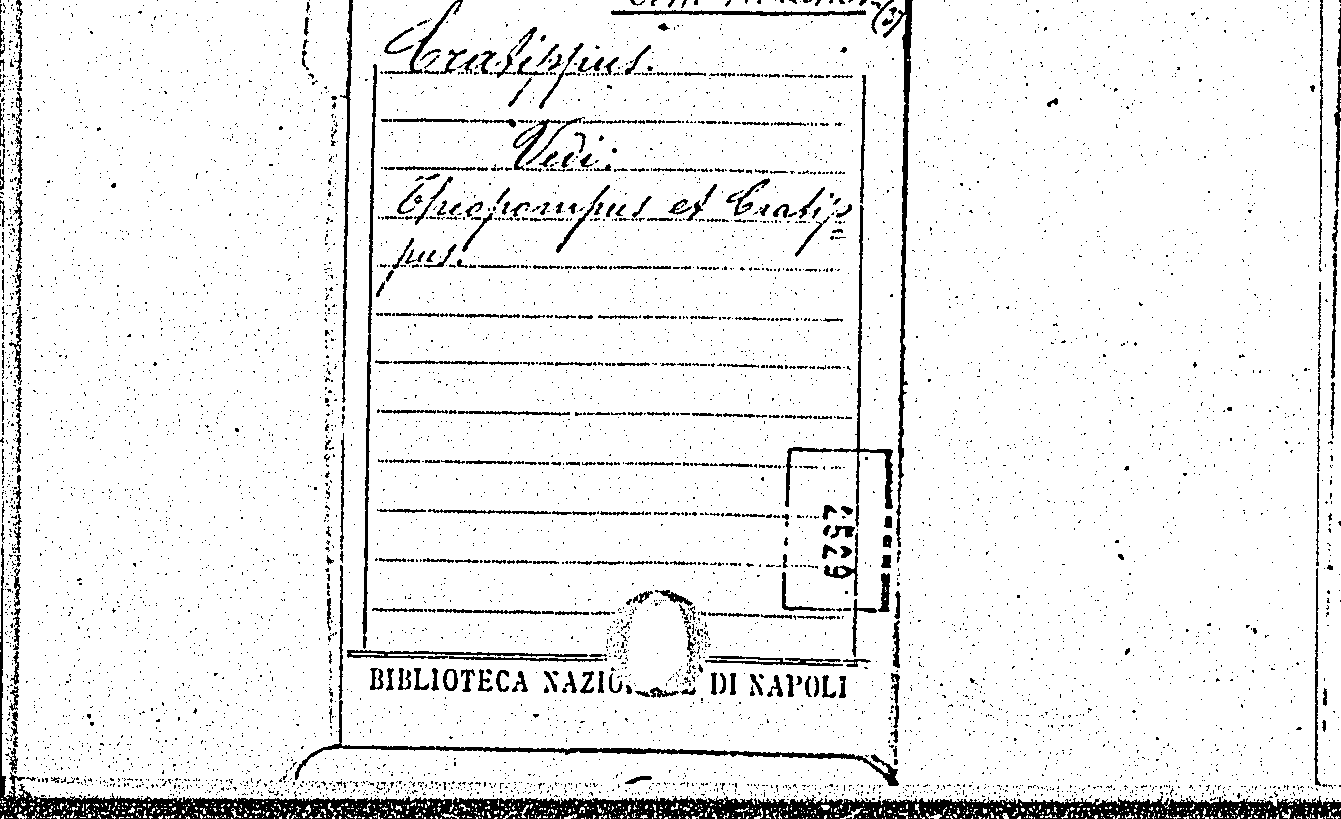 (37
Cratippus.
Vedi:
Theopompus et Cratip=
pus.
2529
BIBLIOTECA NAZIONALE DI NAPOLI